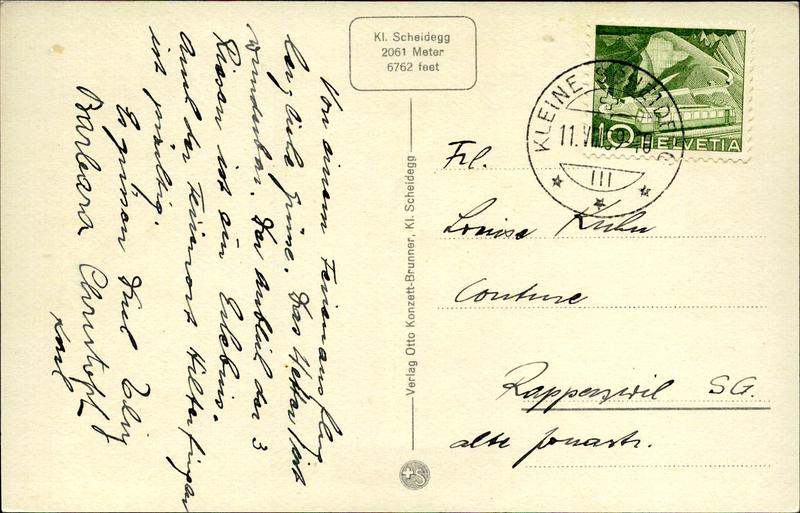 Kl. Scheidegg
2061 Meter
6762 feet
KLEINE SCHEIDEGG
11.VII.59-10
III
10
HELVETIA
Von einem Ferienausflug
viele Grüsse. Das Wetter ist
wunderbar. Der Anblick der 3
Riesen ist ein Erlebnis.
Auch der Ferienort Hilterfingen
ist prächtig.
Es grüssen
Barbara Christoph
Karl
Verlag Otto Konzett-Brunner, Kl. Scheidegg
Frl.
Louise Kuhn
Couture
Rapperswil SG.
alte Jonastr.